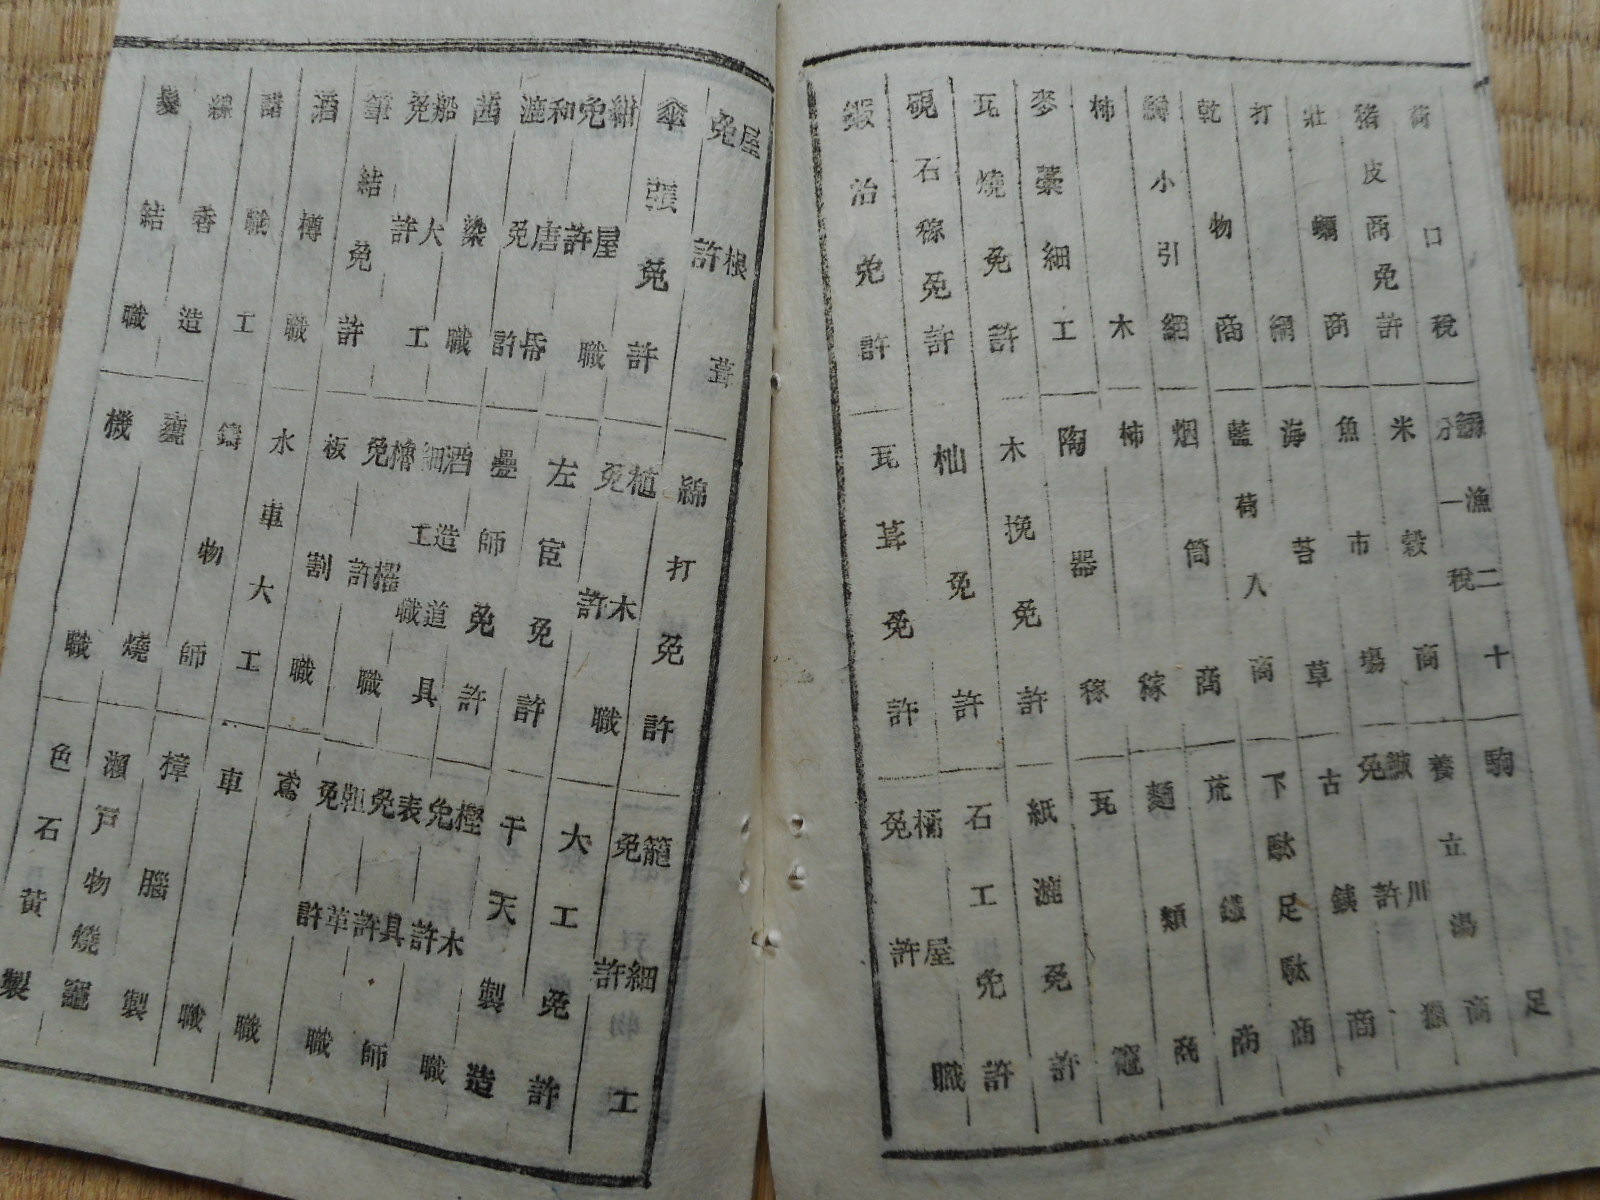 荷口税
猪皮商免許
壮蠣商
打綿商
乾物商
鱒小引網
柿木
麥藁細工
瓦燒免許
硯石稼免許
鍛冶免許
漁二十分一税
米穀商
魚市場
海苔草
藍荷入商
烟筒商
柿稼
陶器稼
木挽免許
杣免許
瓦葺免許
駒足
養立湯商
川免許
古鉄商
下駄足駄商
荒鐵商
麺類商
瓦竈
紙漉免許
石工免許
桶屋職免許
屋根葺免許
傘張免許
紺屋職免許
和唐帋漉免許
茜染職
船大工免許
筆結免許
酒樽職
諸職工
線香造
髪結職
綿打免許
植木職免許
左官免許
疊師免許
酒造道具細工職
櫓櫂職免許
板割職
水車大工
鑄物師
甕燒
機職
籠細物工免許
大工免許
干天製造
樫木職免許
表具師免許
鞋革職免許
鳶職
車職
樟腦製
瀬戸物燒竈
色石黄製